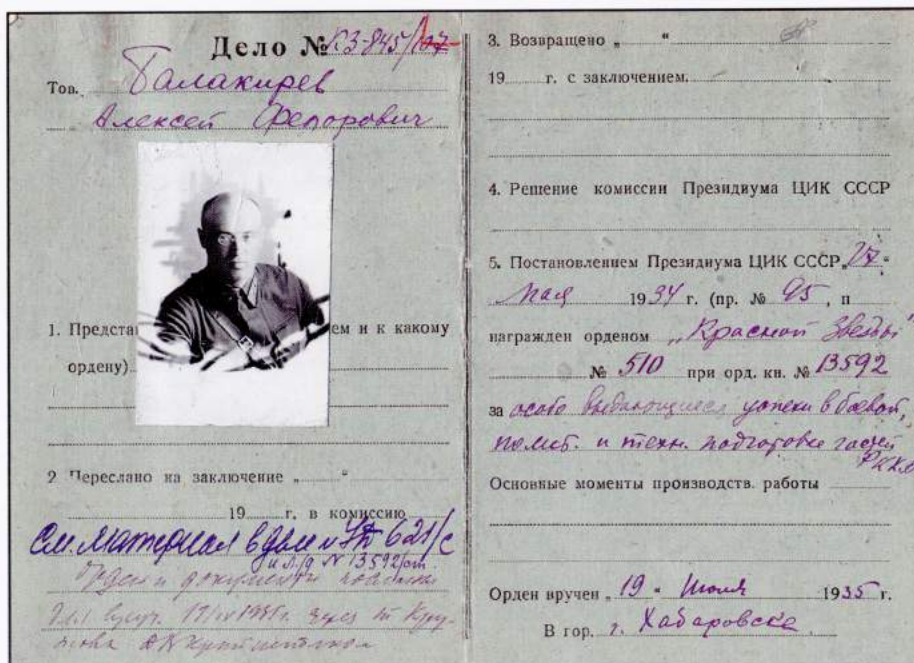 Дело № КЗ-845/107
Тов. Балакирев
Алексей Федорович
1. Предста ем и к какому
ордену)
2 Переслано на заключение „ “
19 г. в комиссию
См. материал в деле № 621/с
и л/д № 13592/оп.
Орден и документы посланы
для вруч. через т.
3. Возвращено „ “
19 г. с заключением.
4. Решение комиссии Президиума ЦИК СССР
5. Постановлением Президиума ЦИК СССР „27“
мая 1934 г. (пр. № 95, п
награжден орденом „Красной Звезды“
№ 510 при орд. кн. № 13592
за особо выдающиеся успехи в боевой,
полит. и техн. подготовке частей
РККА
Основные моменты производств. работы
Орден вручен „19“ Июля 1935 г.
В гор. г. Хабаровске